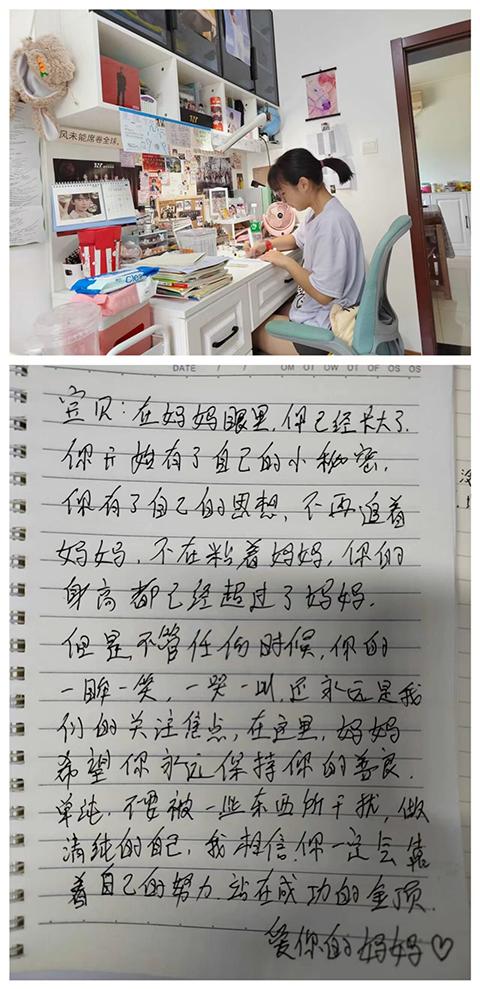 风未能席卷全球
DATE / / 
宝贝：在妈妈眼里，你已经长大了.
你开始有了自己的小秘密.
你有了自己的思想，不再追着
妈妈，不在粘着妈妈，你的
身高都已经超过了妈妈.
但是，不管任何时候，你的
一眸一笑，一哭一叫，还永远是我
们的关注焦点，在这里，妈妈
希望你永远保持你的善良.
单纯.不要被一些东西所干扰，做
清纯的自己，我相信，你一定会靠
着自己的努力.站在成功的金顶.
爱你的妈妈♡